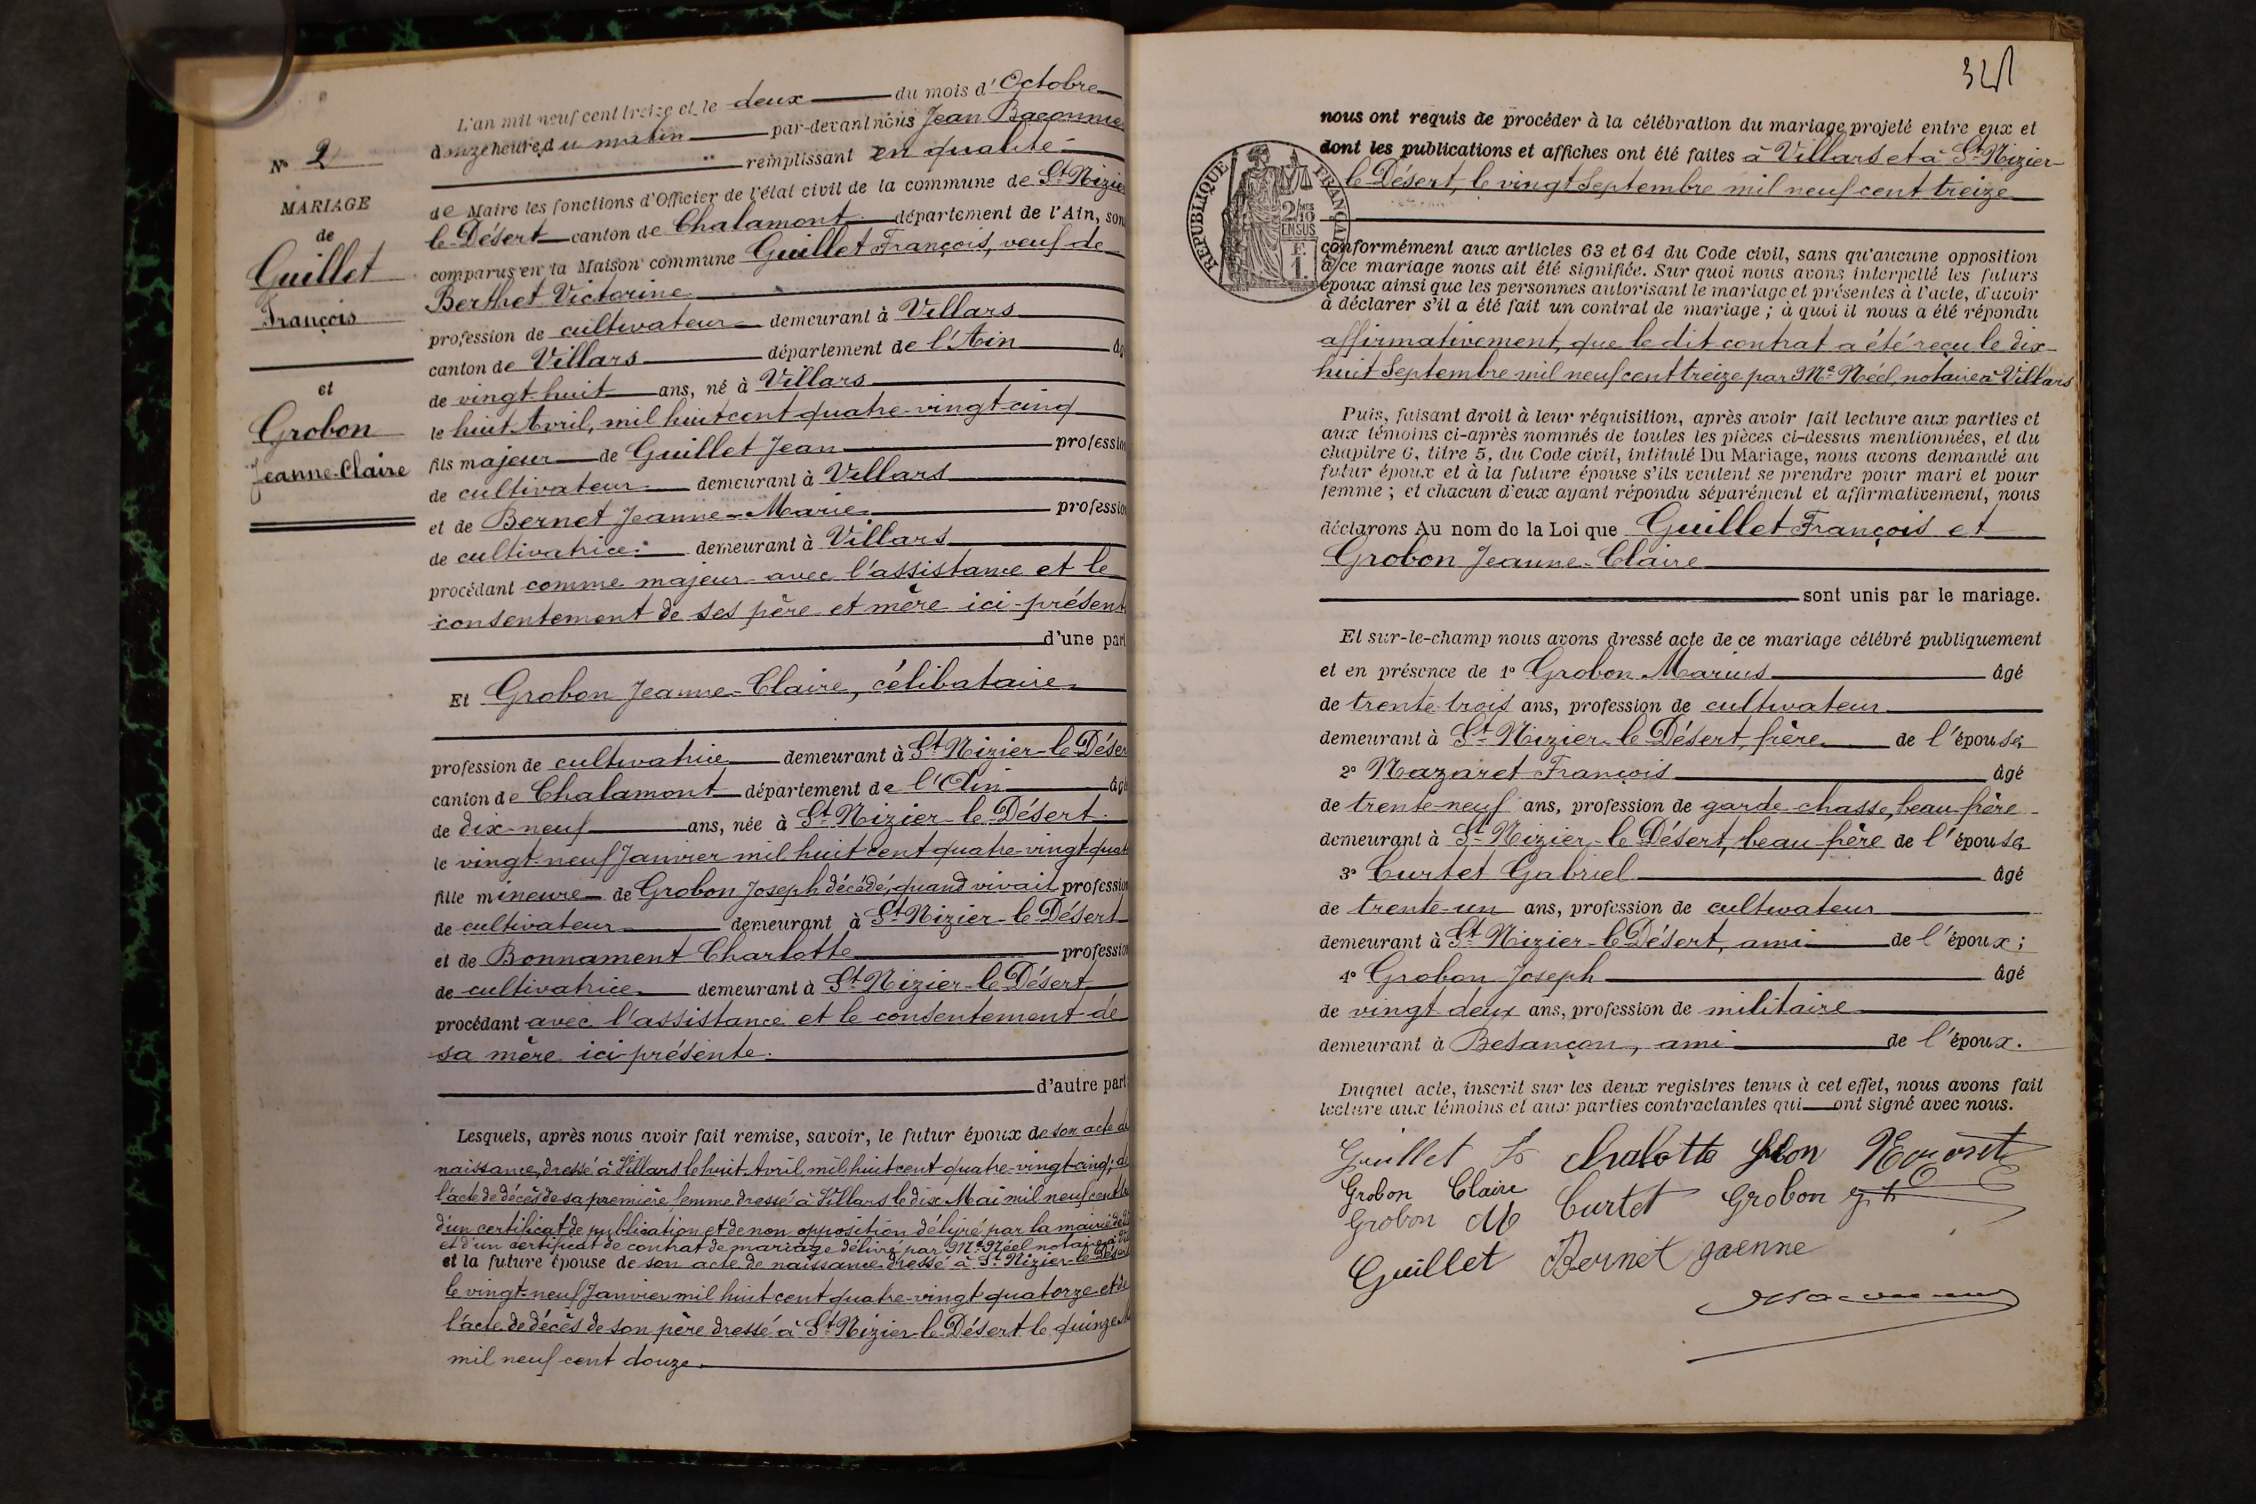 N° 2
MARIAGE
de
Guillet
François
et
Grobon
Jeanne-Claire
L'an mil neuf cent treize et le deux du mois d'Octobre
à onze heures du matin par-devant nous Jean Baconnie
remplissant en qualité
de Maire les fonctions d'Officier de l'état civil de la commune de St Nizie
le-Désert canton de Chalamont département de l'Ain, son
comparus en la Maison commune Guillet François, veuf de
Berthet Victorine
profession de cultivateur demeurant à Villars
canton de Villars département de l'Ain âg
de vingt-huit ans, né à Villars
le huit Avril, mil huit cent quatre-vingt-cinq
fils majeur de Guillet Jean professio
de cultivateur demeurant à Villars
et de Bernet Jeanne-Marie professio
de cultivatrice demeurant à Villars
procédant comme majeur avec l'assistance et le
consentement de ses père et mère ici-présent
d'une part
Et Grobon Jeanne-Claire, célibataire
profession de cultivatrice demeurant à St Nizier-le Déser
canton de Chalamont département de l'Ain âgé
de dix-neuf ans, née à St Nizier-le-Désert
le vingt-neuf Janvier mil huit cent quatre-vingt-quat
fille mineure de Grobon Joseph décédé, quand vivait profession
de cultivateur demeurant à St Nizier-le Désert
et de Bonnament Charlotte profession
de cultivatrice demeurant à St Nizier-le Désert
procédant avec l'assistance et le consentement de
sa mère ici-présente.
d'autre part
Lesquels, après nous avoir fait remise, savoir, le futur époux de son acte de
naissance, dressé à Villars le huit Avril mil huit cent quatre-vingt-cinq; de
l'acte de décès de sa première femme dressé à Villars le dix Mai mil neuf cent
d'un certificat de publication et de non opposition délivré par la mairie de
et d'un certificat de contrat de mariage délivré par Me Néel notaire à
et la future épouse de son acte de naissance dressé à St Nizier-le Désert
le vingt-neuf Janvier mil huit cent quatre-vingt quatorze et de
l'acte de décès de son père dressé à St Nizier-le-Désert le quinze
mil neuf cent douze.
RÉPUBLIQUE FRANÇAISE
2/10
EN SUS
F.
1.
nous ont requis de procéder à la célébration du mariage projeté entre eux et
dont les publications et affiches ont été faites à Villars et à St Nizier
le Désert, le vingt Septembre mil neuf cent treize
conformément aux articles 63 et 64 du Code civil, sans qu'aucune opposition
à ce mariage nous ait été signifiée. Sur quoi nous avons interpellé les futurs
époux ainsi que les personnes autorisant le mariage et présentes à l'acte, d'avoir
à déclarer s'il a été fait un contrat de mariage ; à quoi il nous a été répondu
affirmativement, que le dit contrat a été reçu le dix-
huit Septembre mil neuf cent treize par Me Néel, notaire à Villars
Puis, faisant droit à leur réquisition, après avoir fait lecture aux parties et
aux témoins ci-après nommés de toutes les pièces ci-dessus mentionnées, et du
chapitre 6, titre 5, du Code civil, intitulé Du Mariage, nous avons demandé au
futur époux et à la future épouse s'ils veulent se prendre pour mari et pour
femme ; et chacun d'eux ayant répondu séparément et affirmativement, nous
déclarons Au nom de la Loi que Guillet François et
Grobon Jeanne-Claire
sont unis par le mariage.
Et sur-le-champ nous avons dressé acte de ce mariage célébré publiquement
et en présence de 1° Grobon Marius âgé
de trente-trois ans, profession de cultivateur
demeurant à St Nizier-le Désert, frère de l'épouse;
2° Nazaret François âgé
de trente-neuf ans, profession de garde-chasse, beau-frère
demeurant à St Nizier-le Désert, beau-frère de l'épouse;
3° Curtet Gabriel âgé
de trente-un ans, profession de cultivateur
demeurant à St Nizier-le Désert, ami de l'époux;
4° Grobon Joseph âgé
de vingt deux ans, profession de militaire
demeurant à Besançon, ami de l'époux.
Duquel acte, inscrit sur les deux registres tenus à cet effet, nous avons fait
lecture aux témoins et aux parties contractantes qui ont signé avec nous.
Guillet
Grobon Claire
Grobon M Curtet Grobon
Guillet Bernet